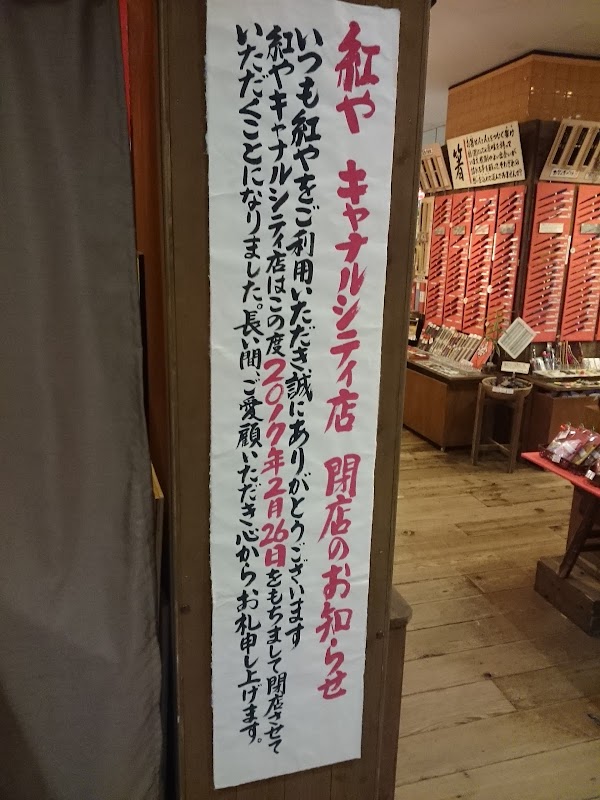 紅や キャナルシティ店 閉店のお知らせ
いつも紅やをご利用いただき誠にありがとうございます
紅やキャナルシティ店はこの度2017年2月26日をもちまして閉店させて
いただくことになりました。長い間ご愛顧いただき心からお礼申し上げます。
箸